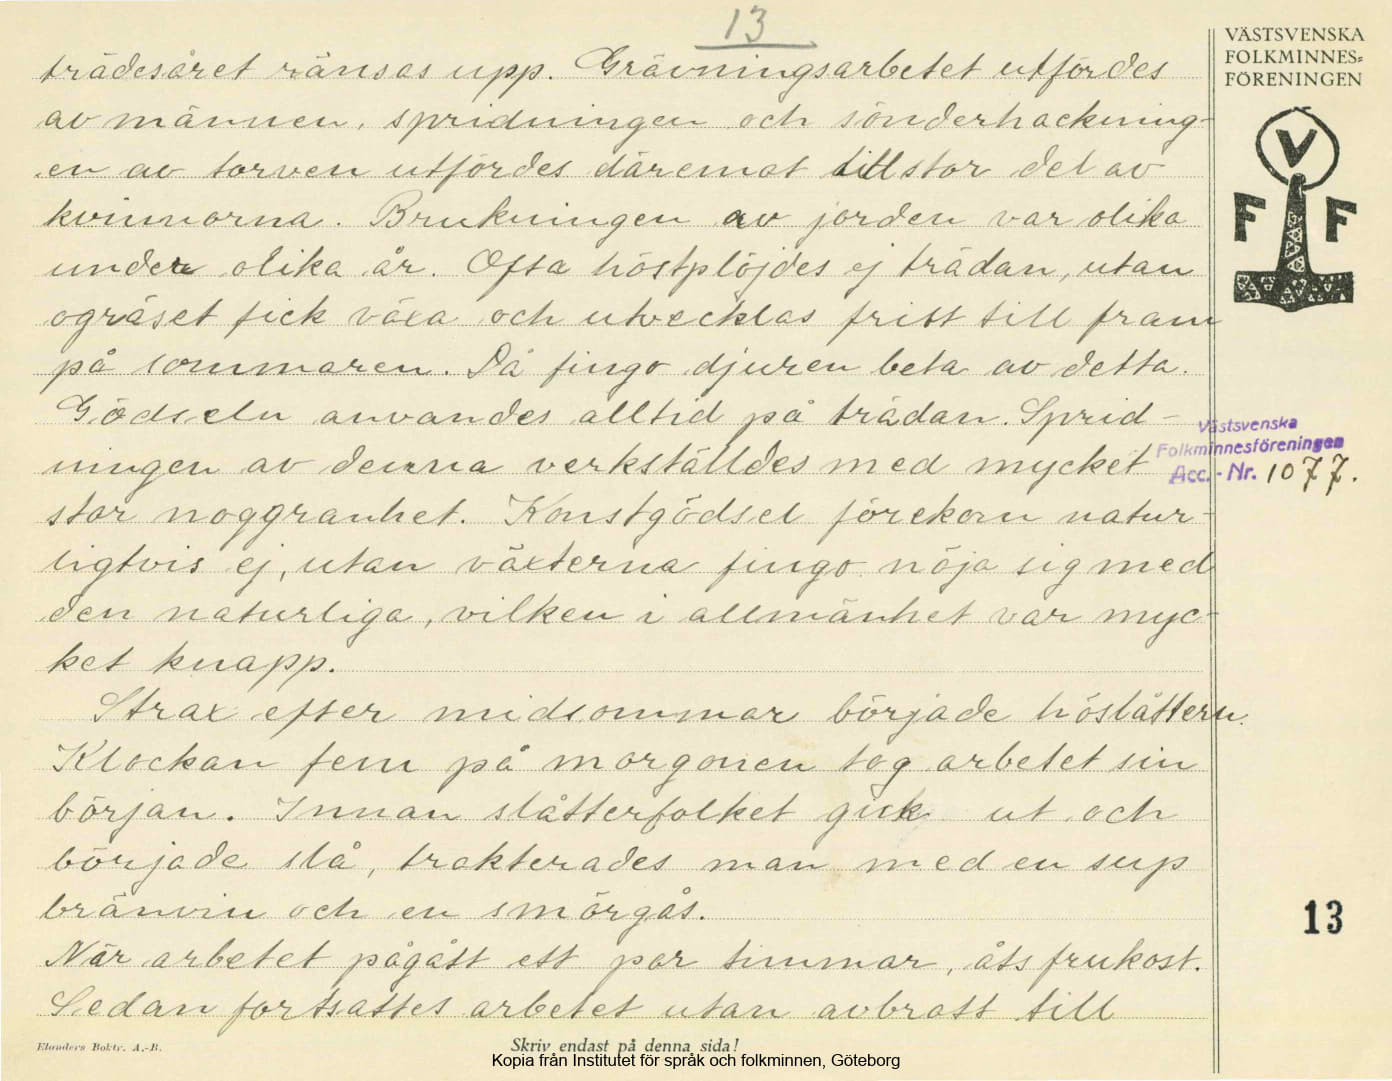 13
trädesåret ränsas upp. Grävningsarbetet utfördes
av männen, spridningen och sönderhackning-
en av torven utfördes däremot till stor del av
kvinnorna. Brukningen av jorden var olika
under olika år. Ofta höstplöjdes ej trädan, utan
ogräset fick växa och utvecklas fritt till fram
på sommaren. Då fingo djuren beta av detta.
Gödseln användes alltid på trädan. Sprid-
ningen av denna verkställdes med mycket
stor noggranhet. Konstgödsel förekom natur-
ligtvis ej, utan växterna fingo nöja sig med
den naturliga, vilken i allmänhet var myc-
ket knapp.
Strax efter midsommar började höslåttern.
Klockan fem på morgonen tog arbetet sin
början. Innan slåtterfolket gick ut och
började slå, trakterades man med en sup
bränvin och en smörgås.
När arbetet pågått ett par timmar, åts frukost.
Sedan fortsattes arbetet utan avbrott till
VÄSTSVENSKA
FOLKMINNES-
FÖRENINGEN
V
F F
Västsvenska
Folkminnesföreningen
Acc.-Nr. 1077.
13
Elanders Boktr. A.-B.
Skriv endast på denna sida!
Kopia från Institutet för språk och folkminnen, Göteborg